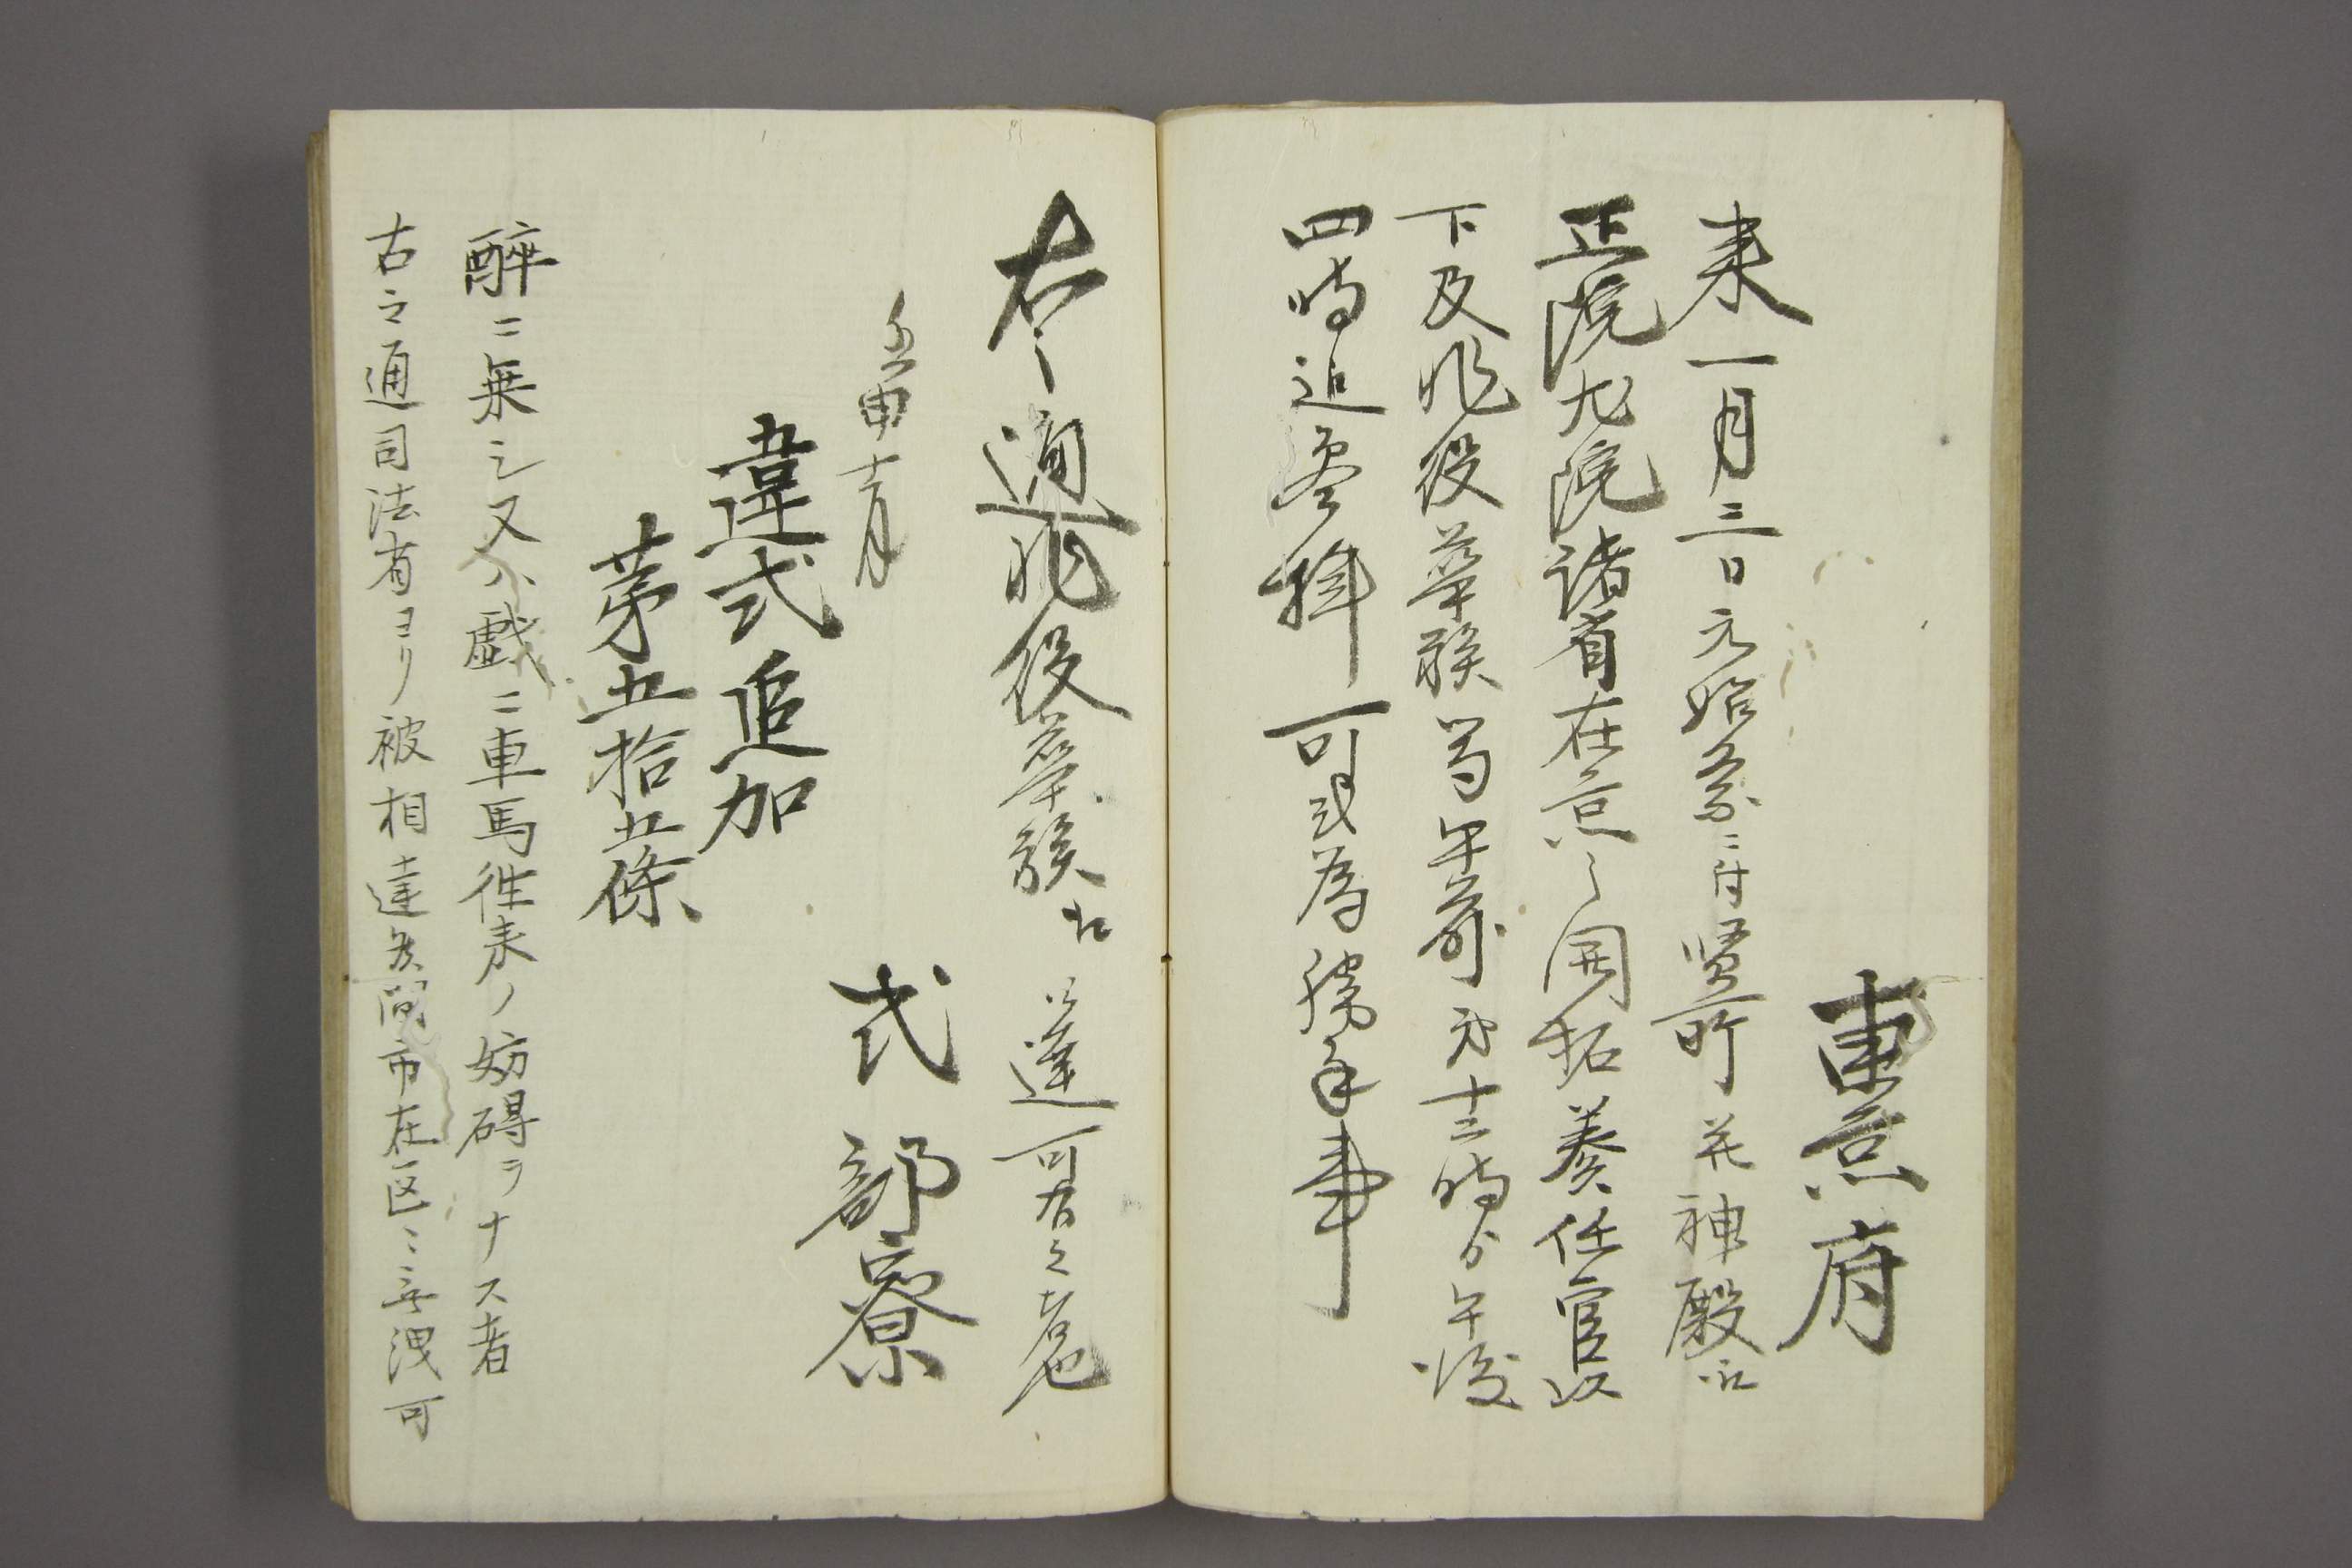 東京府
来一月三日元始祭ニ付賢所并神殿江
正院左院諸省在京之開拓奏任官以
下及非役華族等午前第十二時ゟ午後
四時迄参拝可致為勝手事
右之通非役華族江相達可有之者也
壬申十二月
式部寮
違式追加
第五拾五條
酔ニ乗シ又ハ戯ニ車馬往来ノ妨碍ヲナス者
右之通司法省ヨリ被相達候間市在区々無洩可